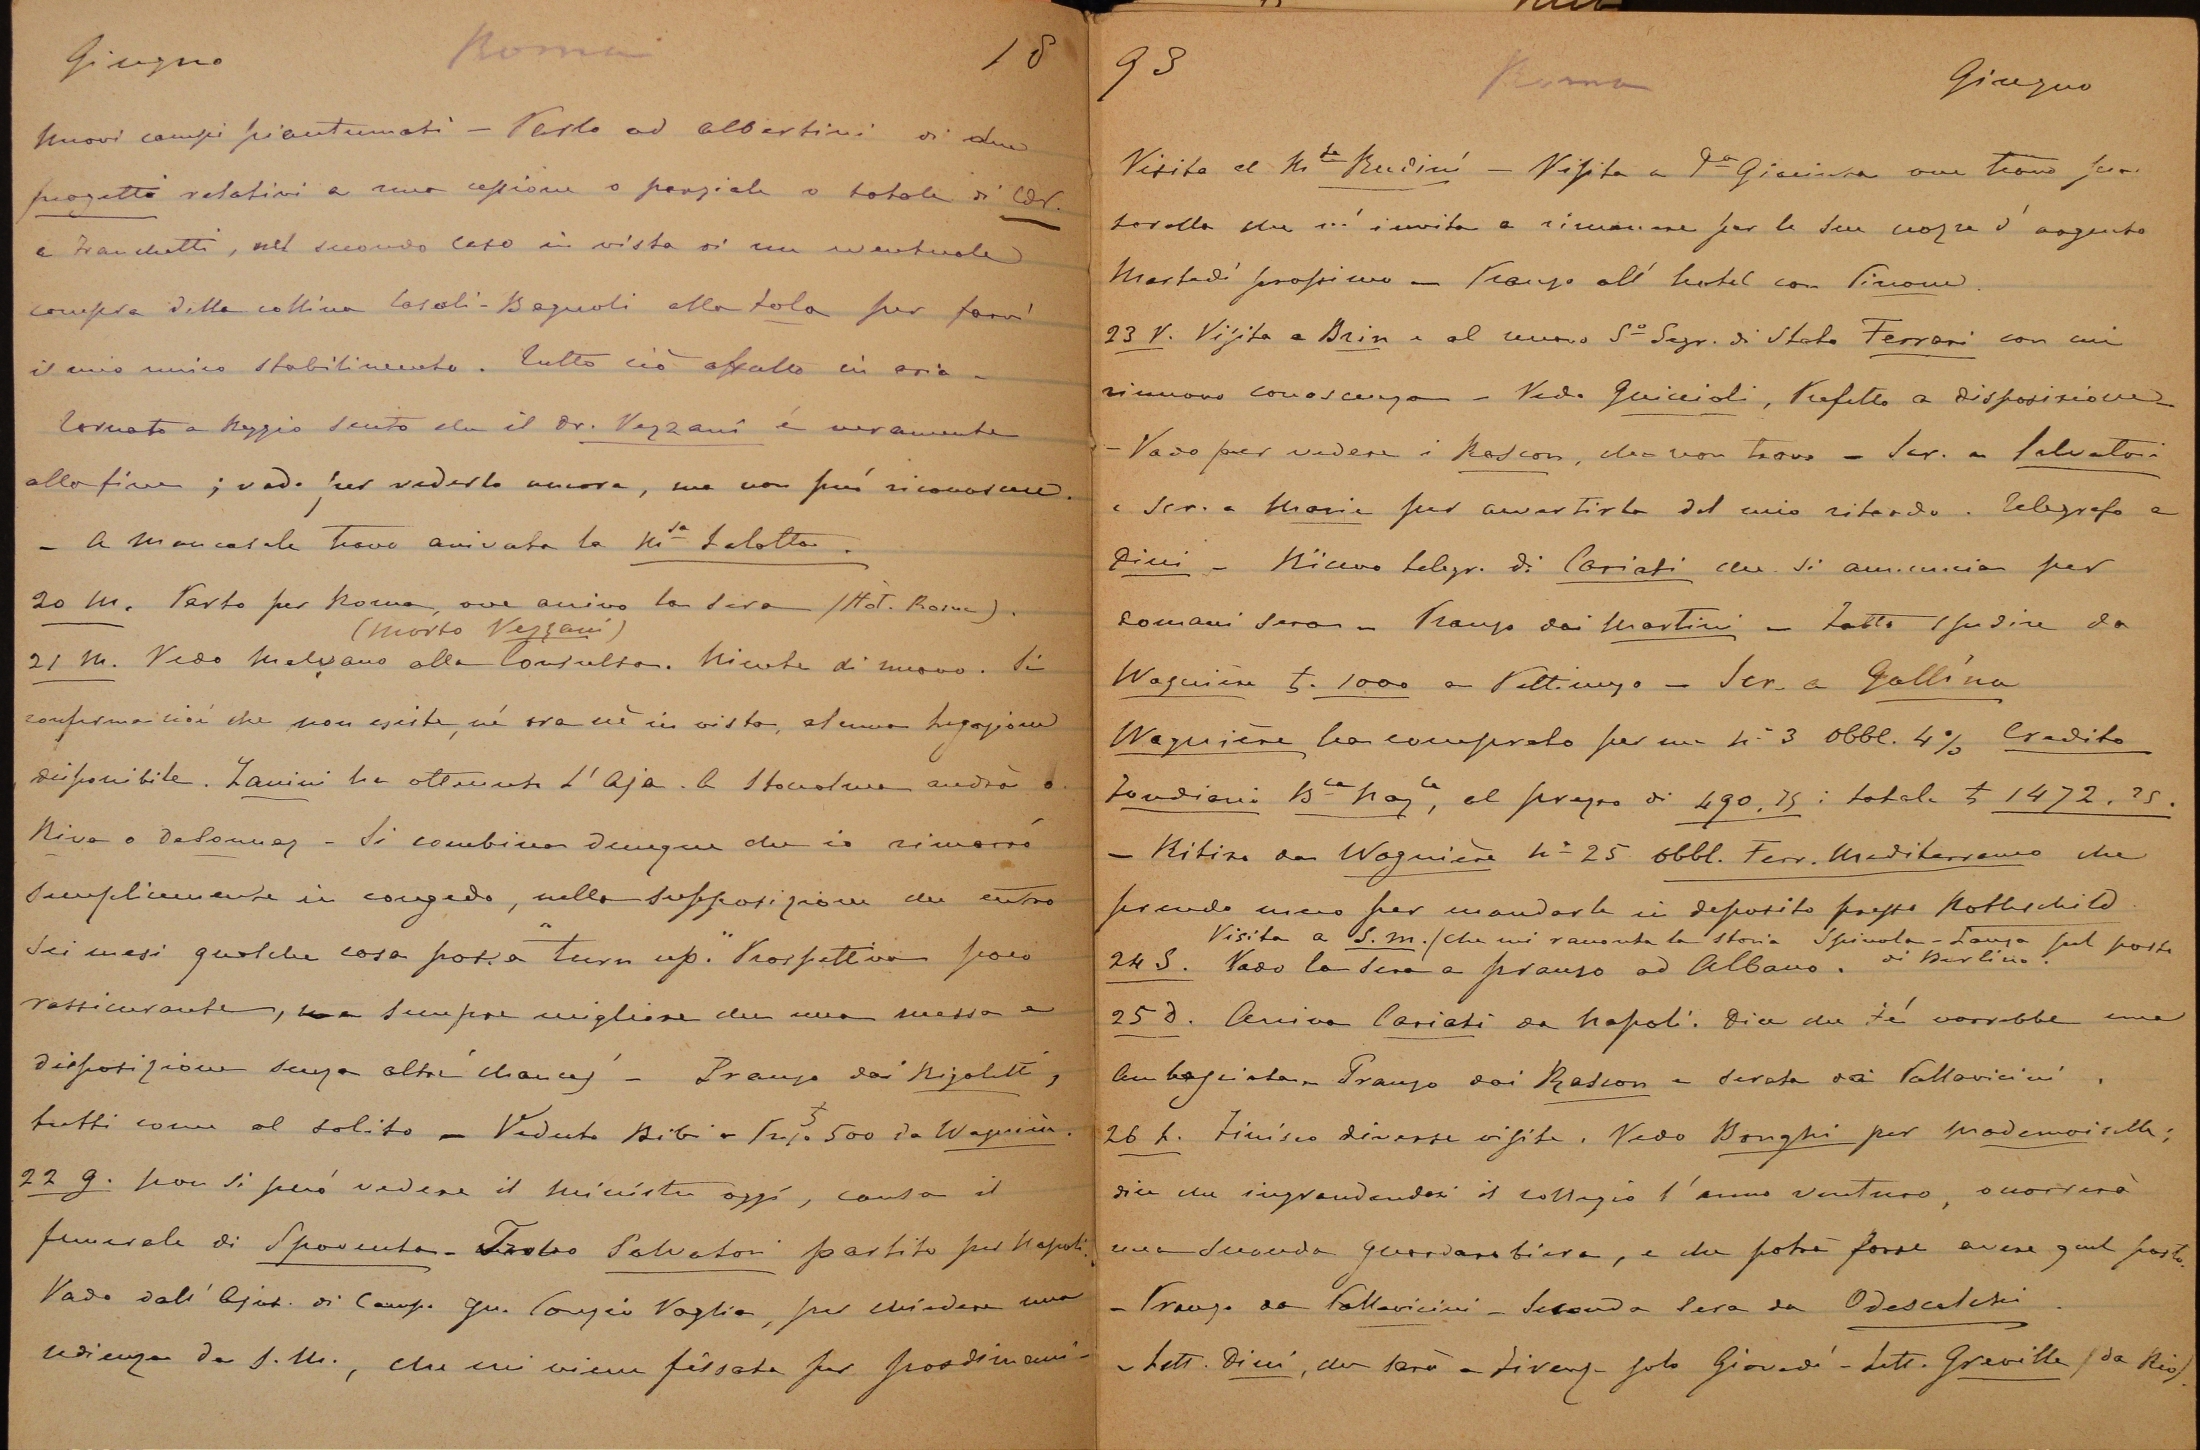 Giugno Roma 18
nuovi campi piantumati – Parlo ad Albertini di due
progetti relativi a una cessione o parziale o totale di
a Franchetti, nel secondo caso in vista di un eventuale
compra della collina Casali-Bagnoli alla Lola per farvi
il mio unico stabilimento. Tutto ciò affatto in aria –
Tornato a Reggio sento che il Dr. Vezzani é veramente
alla fine; vado per vederlo ancora, ma non può riconoscere.
– A Mancasale trovo arrivata la M.sa
20 M. Parto per Roma, ove arrivo la sera (Hôt. Rome).
(morto Vezzani)
21 M. Vedo Malvano alla Consulta. Niente di nuovo. Si
conferma cioé che non esiste, né ora nè in vista, alcuna legazione
disponibile. Zanini ha ottenuto l'Aja. A Stocolma andrà o
Riva o DeSonnaz – Si combina dunque che io rimarrò
semplicemente in congedo, nella supposizione che entro
sei mesi qualche cosa possa "turn up." Prospettiva poco
rassicurante, ma sempre migliore che una messa a
disposizione senza altre chances – Pranzo dai Rigoletti,
tutti come al solito – Veduto Bibi – £ 500 da Wagnière.
22 G. Non si può vedere il Ministro oggi, causa il
funerale di Spaventa – Trovo Salvatori partito per Napoli.
Vado dall'Ajut. di Campo Gen. Ponzio Vaglia, per chiedere una
udienza da S.M., che mi viene fissata per posdimani –
93 Roma Giugno
Visita al M.se Rudiní – Visita a D.a Giacinta ove trovo sua
sorella che m'invita a rimanere per le sue nozze d'argento
Martedí prossimo – Pranzo all'hotel con Pirrone.
23 V. Visita a Brin e al nuovo S.o Segr. di Stato Ferrari con cui
rinnovo conoscenza – Vedo Guiccioli, Prefetto a disposizione
– Vado per vedere i Rascon, che non trovo – Scr. a Salvatori
e scr. a Marie per avvertirla del mio ritardo. Telegrafo a
Dini – Ricevo telegr. di Cariati che si annuncia per
domani sera – Pranzo dai Martini – Fatto spedire da
Wagnière £. 1000 a Pettinengo – Scr. a Gallina
Wagnière ha comprato per me n° 3 Obbl. 4% Credito
Fondiario B.ca Naz.le, al prezzo di 490,75: totale £ 1472.25.
– Ritiro da Wagnière n° 25 obbl. Ferr. Mediterraneo che
prendo meco per mandarle in deposito presso Rothschild.
Visita a S.M. (che mi racconta la storia Spinola-Lanza pel posto
24 S. Vado la sera a pranzo ad Albano. di Berlino.
25 D. Arriva Cariati da Napoli. Dice che Fé vorrebbe una
Ambasciata – Pranzo dai Rascon e serata dai Pallavicini.
26 L. Finisco diverse visite. Vedo Bonghi per Mademoiselle;
dice che ingrandendosi il collegio l'anno venturo, occorrerà
una seconda guardarobiera, e che potrà forse avere quel posto.
– Pranzo da Pallavicini – Seconda sera da Odescalchi.
– Lett. Dini, che sarà a Firenze solo Giovedí – Lett. Greville (da Rio).